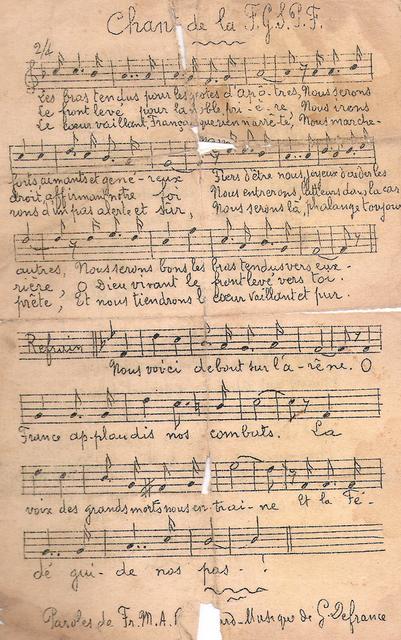 Chant de la F.G.S.P.F.
2/4
Les bras tendus pour les votes d'apôtres, Nous serons
Le front levé pour la noble pri-è-re Nous irons
Le cœur vaillant, Français que rien n'arrête, Nous marche-
forts aimants et géné-reux Fiers d'être nous, joyeux d'aider les
droit, affirmant notre foi Nous entrerons lutteurs dans la car
rons d'un pas alerte et sûr, Nous serons là, phalange toujours
autres, Nous serons bons les bras tendus vers eux.
rière, O Dieu vivant le front levé vers toi.
prête, Et nous tiendrons le cœur vaillant et pur.
Refrain
Nous voici debout sur l'a-rène. O
France ap-plaudis nos combats. La
voix des grands morts nous en-traî-ne Et la Fé-
dé gui-de nos pas-!
Paroles de Fr. M. A. Musique de G. Defrance